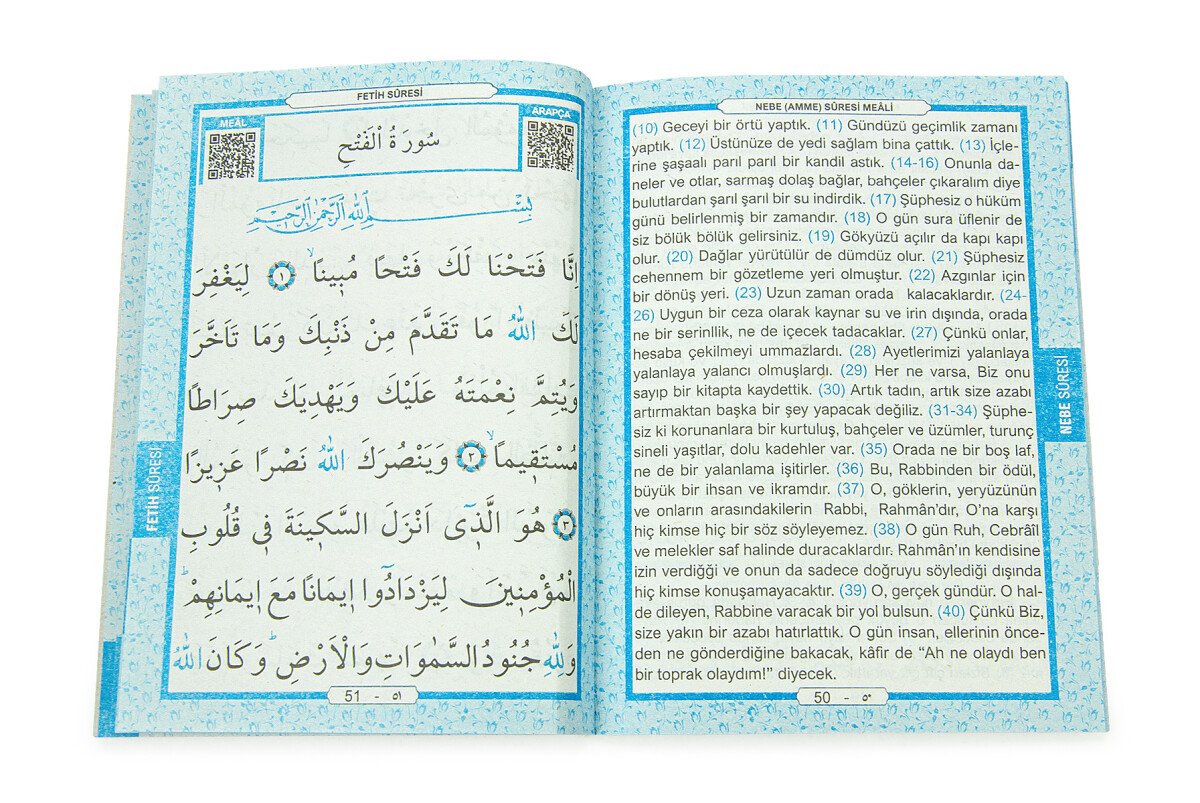 FETİH SÛRESİ
MEÂL
ARAPÇA
سُورَةُ الْفَتْحِ
بِسْمِ اللّٰهِ الرَّحْمٰنِ الرَّحٖيمِ
اِنَّا فَتَحْنَا لَكَ فَتْحًا مُبٖينًاۙ ﴿١﴾ لِيَغْفِرَ
لَكَ اللّٰهُ مَا تَقَدَّمَ مِنْ ذَنْبِكَ وَمَا تَاَخَّرَ
وَيُتِمَّ نِعْمَتَهُ عَلَيْكَ وَيَهْدِيَكَ صِرَاطًا
مُسْتَقٖيمًاۙ ﴿٢﴾ وَيَنْصُرَكَ اللّٰهُ نَصْرًا عَزٖيزًا
﴿٣﴾ هُوَ الَّذٖٓى اَنْزَلَ السَّكٖينَةَ فٖى قُلُوبِ
الْمُؤْمِنٖينَ لِيَزْدَادُٓوا اٖيمَانًا مَعَ اٖيمَانِهِمْۜ
وَلِلّٰهِ جُنُودُ السَّمٰوَاتِ وَالْاَرْضِۜ وَكَانَ اللّٰهُ
51 - ٥١
FETİH SÛRESİ
NEBE (AMME) SÛRESİ MEÂLİ
(10) Geceyi bir örtü yaptık. (11) Gündüzü geçimlik zamanı
yaptık. (12) Üstünüze de yedi sağlam bina çattık. (13) İçle-
rine şaşaalı parıl parıl bir kandil astık. (14-16) Onunla da-
neler ve otlar, sarmaş dolaş bağlar, bahçeler çıkaralım diye
bulutlardan şarıl şarıl bir su indirdik. (17) Şüphesiz o hüküm
günü belirlenmiş bir zamandır. (18) O gün sura üflenir de
siz bölük bölük gelirsiniz. (19) Gökyüzü açılır da kapı kapı
olur. (20) Dağlar yürütülür de dümdüz olur. (21) Şüphesiz
cehennem bir gözetleme yeri olmuştur. (22) Azgınlar için
bir dönüş yeri. (23) Uzun zaman orada kalacaklardır. (24-
26) Uygun bir ceza olarak kaynar su ve irin dışında, orada
ne bir serinllik, ne de içecek tadacaklar. (27) Çünkü onlar,
hesaba çekilmeyi ummazlardı. (28) Ayetlerimizi yalanlaya
yalanlaya yalancı olmuşlardı. (29) Her ne varsa, Biz onu
sayıp bir kitapta kaydettik. (30) Artık tadın, artık size azabı
artırmaktan başka bir şey yapacak değiliz. (31-34) Şüphe-
siz ki korunanlara bir kurtuluş, bahçeler ve üzümler, turunç
sineli yaşıtlar, dolu kadehler var. (35) Orada ne bir boş laf,
ne de bir yalanlama işitirler. (36) Bu, Rabbinden bir ödül,
büyük bir ihsan ve ikramdır. (37) O, göklerin, yeryüzünün
ve onların arasındakilerin Rabbi, Rahmân'dır, O'na karşı
hiç kimse hiç bir söz söyleyemez. (38) O gün Ruh, Cebrâîl
ve melekler saf halinde duracaklardır. Rahmân'ın kendisine
izin verdiğği ve onun da sadece doğruyu söylediği dışında
hiç kimse konuşamayacaktır. (39) O, gerçek gündür. O hal-
de dileyen, Rabbine varacak bir yol bulsun. (40) Çünkü Biz,
size yakın bir azabı hatırlattık. O gün insan, ellerinin önce-
den ne gönderdiğine bakacak, kâfir de "Ah ne olaydı ben
bir toprak olaydım!" diyecek.
50 - ٥٠
NEBE SÛRESİ